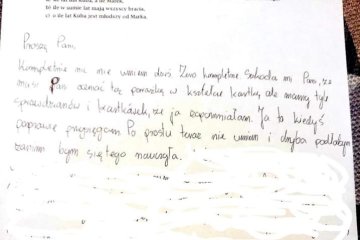 b) ile w sumie lat mają wszyscy bracia.
c) o ile lat Kuba jest młodszy od Marka.
Proszę Pani.
Kompletnie nic nie umiem dziś Zero kompletne Szkoda mi Pani, że
musi Pan oceniać tą porażkę w kształcie kartki, ale mamy tyle
sprawdzianów i kartkówek, że ja zapomniałam. Ja to kiedyś
poprawię przysięgam Po prostu teraz nie umiem i chyba padłabym
zanim bym się tego nauczyła.